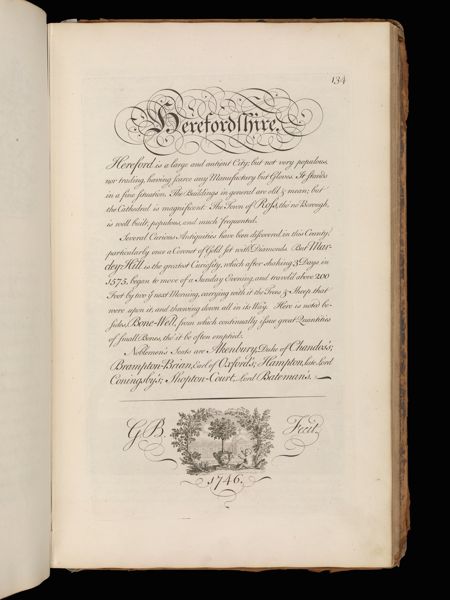 134
Herefordshire.
Hereford is a large and antient City; but not very populous,
nor trading, having scarce any Manufactury but Gloves. It stands
in a fine situation. The Buildings in general are old & mean; but
the Cathedral is magnificent. The Town of Ross, tho' no Borough,
is well built, populous, and much frequented.
Several Curious Antiquities have been discover'd in this County;
particularly once a Coronet of Gold set with Diamonds. But Mar-
cley-Hill is the greatest Curiosity, which after shaking 3 Days in
1575, began to move of a Sunday Evening, and travel'd above 200
Foot by two ye next Morning, carrying with it the Trees & Sheep that
were upon it, and throwing down all in its Way. Here is noted be-
sides, Bone-Well, from which continually issue great Quantities
of small Bones, tho' it be often emptied.
Noblemen's Seats are Akenbury, Duke of Chandos's;
Brampton-Brian, Earl of Oxford's; Hampton, late Lord
Coningsby's; Shopton-Court, Lord Bateman's.
G.B. Fecit.
1746.